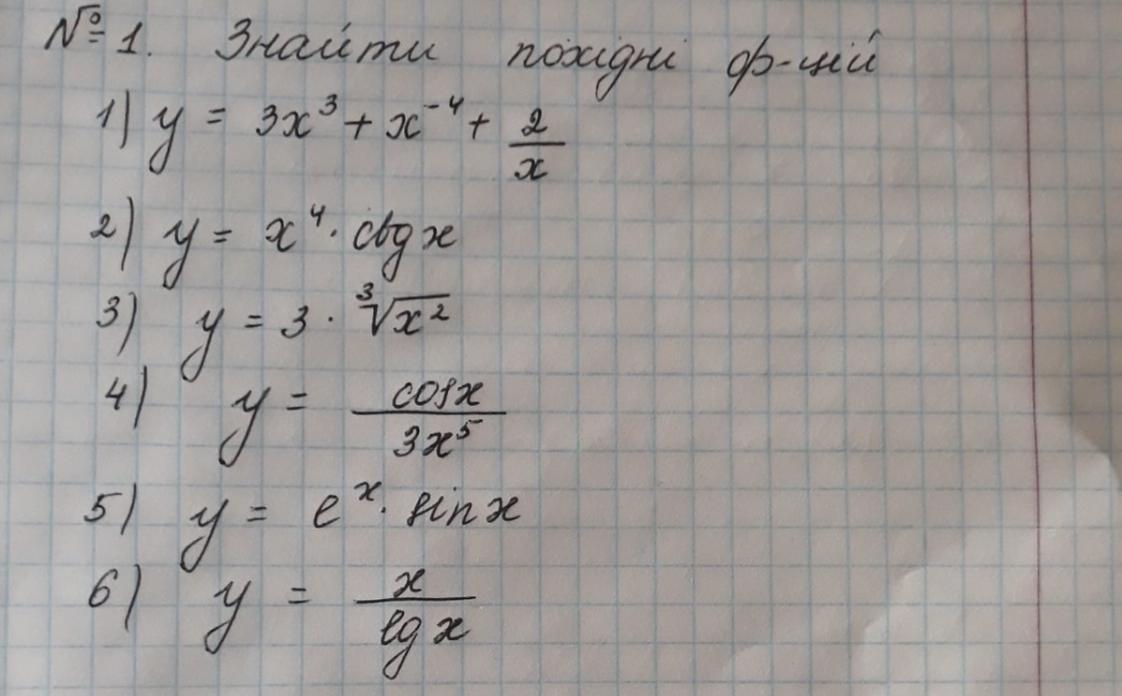 №1. Знайти похідні ф-цій
1) y = 3x³ + x⁻⁴ + 2/x
2) y = x⁴ · ctg x
3) y = 3 · ∛x²
4) y = cos x / 3x⁵
5) y = eˣ · sin x
6) y = x / lg x